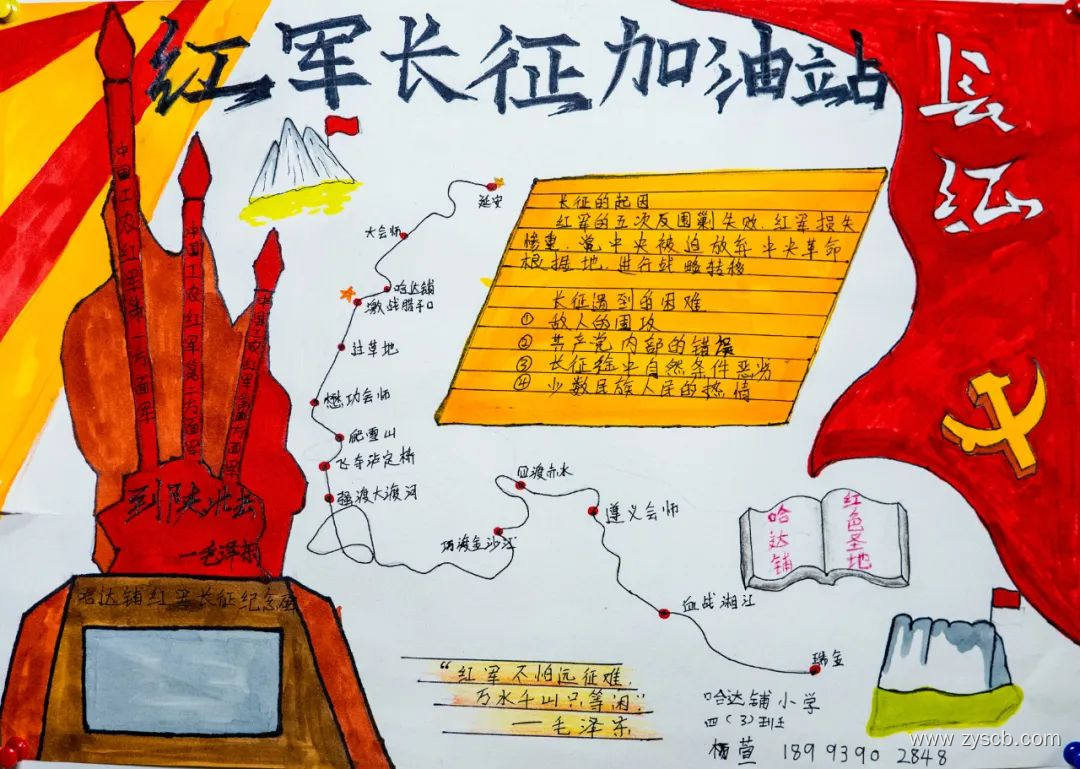 红军长征加油站
长征
中国工农红军第一方面军
中国工农红军第二方面军
到陕北去
—毛泽东
哈达铺红军长征纪念
延安
大会师
哈达铺
激战腊子口
过草地
懋功会师
爬雪山
飞夺泸定桥
强渡大渡河
巧渡金沙江
四渡赤水
遵义会师
血战湘江
瑞金
长征的起因
红军的五次反围剿失败，红军损失
惨重，党中央被迫放弃中央革命
根据地，进行战略转移
长征遇到的困难
① 敌人的围攻
② 共产党内部的错误
③ 长征途中自然条件恶劣
④ 少数民族人民的热情
哈达铺
红色圣地
“红军不怕远征难，
万水千山只等闲”
—毛泽东
哈达铺小学
四（3）班
杨萱 18993902848
www.zyscb.com